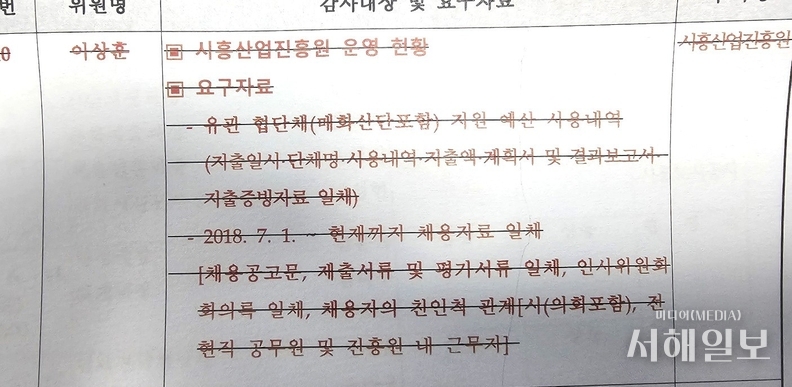 번 위원명 감사대상 및 요구자료
이상훈 ▣ 시흥산업진흥원 운영 현황 시흥산업진흥원
▣ 요구자료
- 유관 협단체(매화산단포함) 지원 예산 사용내역
(지출일시·단체명·사용내역·지출액·계획서 및 결과보고서·
지출증빙자료 일체)
- 2018. 7. 1. ~ 현재까지 채용자료 일체
[채용공고문, 제출서류 및 평가서류 일체, 인사위원회
회의록 일체, 채용자의 친인척 관계[시(의회포함), 전
현직 공무원 및 진흥원 내 근무자]
미디어(MEDIA)
서해일보